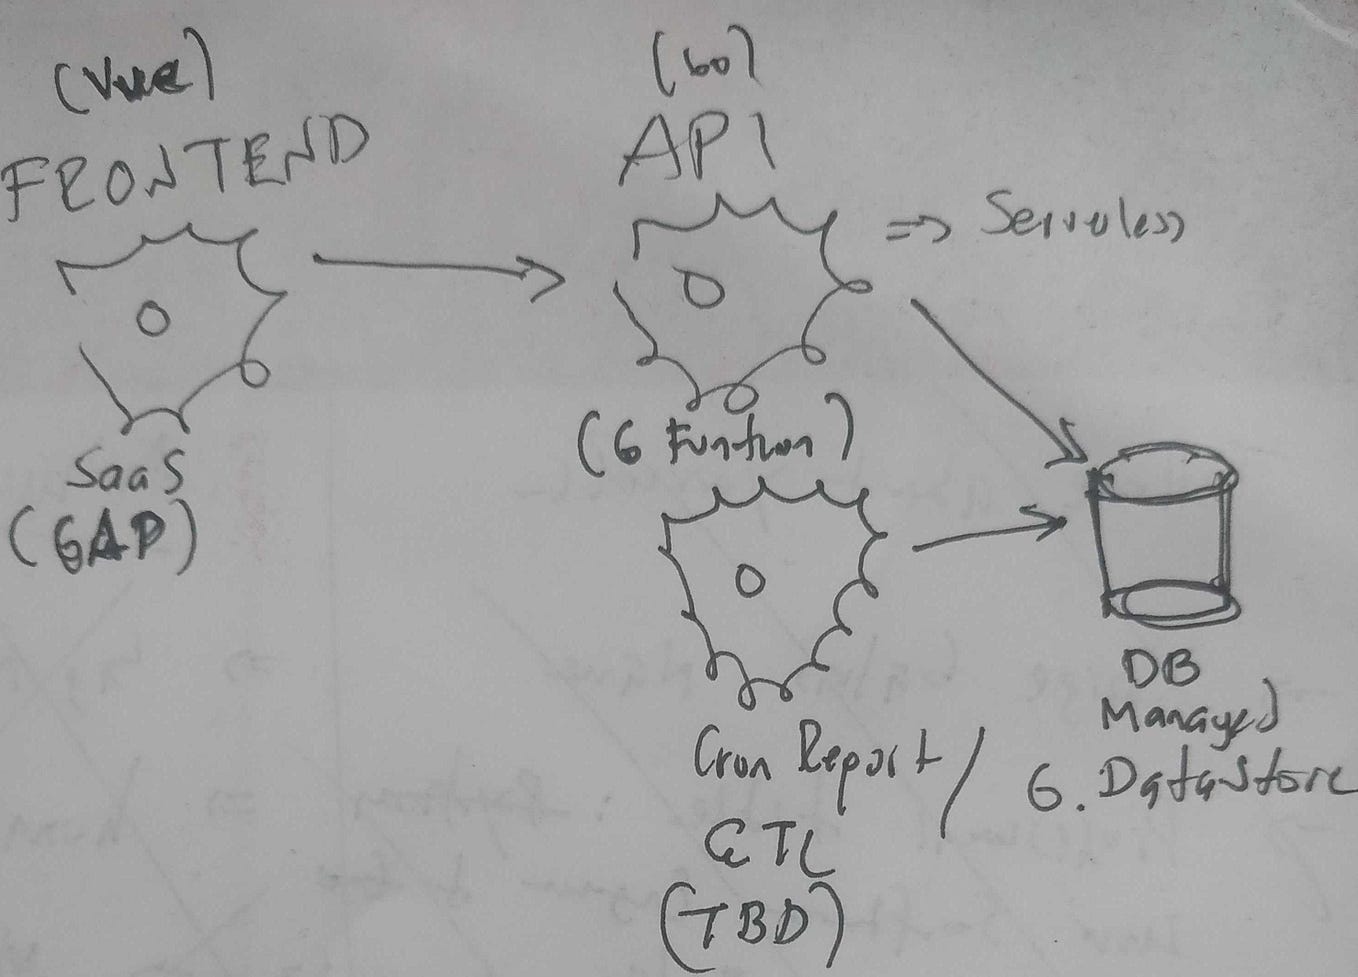 (Vue)
FRONTEND
SaaS
(GAP)
(Go)
API
=> Serverless
(G Funtion)
Cron Report /
ETL
(TBD)
DB
Managed
G. DataStore